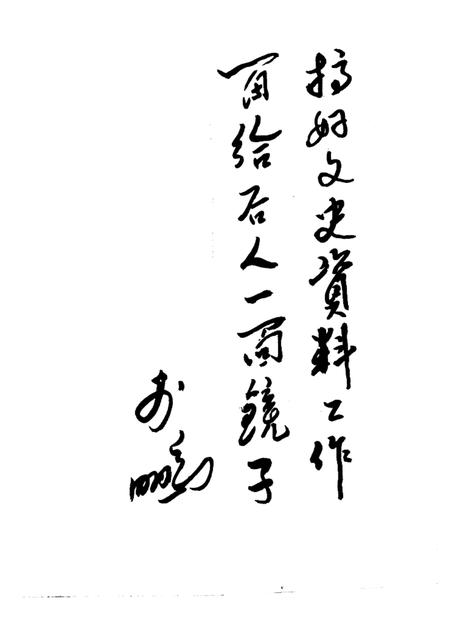 搞好文史資料工作
留给后人一面鏡子
李鹏